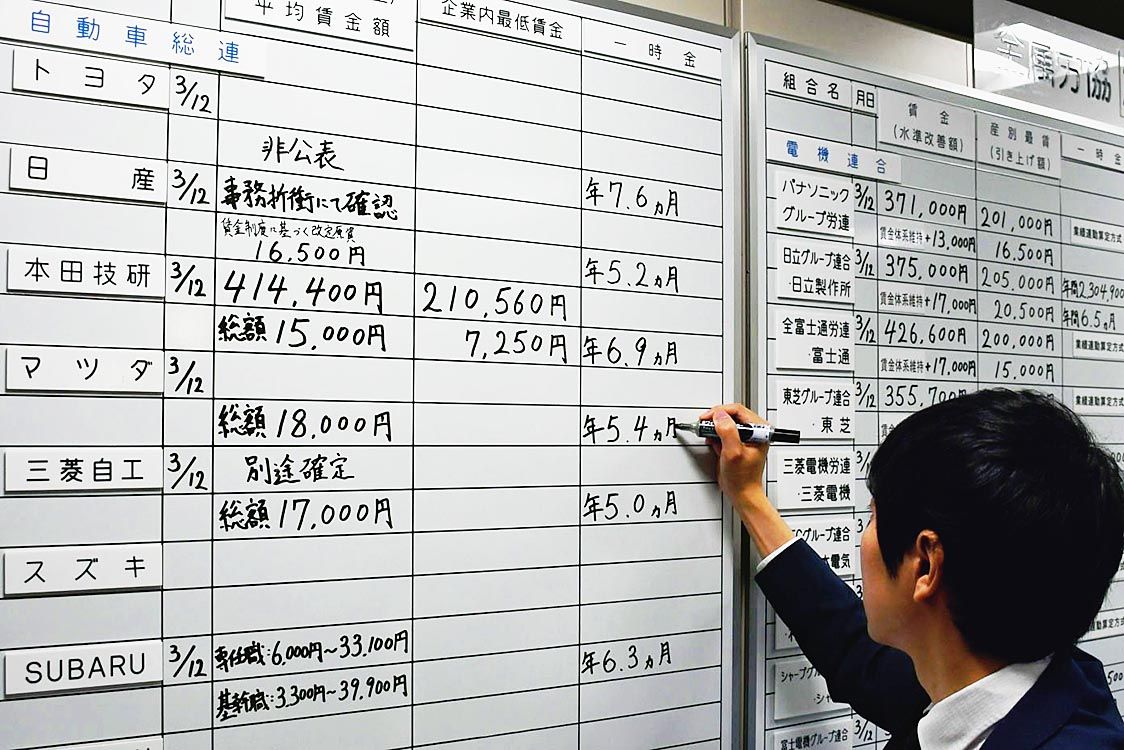 平均賃金額
企業内最低賃金
一時金
自動車総連
トヨタ 3/12
非公表
事務折衝にて確認
年7.6ヵ月
日産 3/12
賃金制度に基づく改定原資
16,500円
年5.2ヵ月
本田技研 3/12
414,400円
210,560円
総額15,000円
7,250円
年6.9ヵ月
マツダ 3/12
総額18,000円
年5.4ヵ月
三菱自工 3/12
別途確定
総額17,000円
年5.0ヵ月
スズキ
SUBARU 3/12
専任職:6,000円～33,100円
年6.3ヵ月
基幹職:3,300円～39,900円
金属労協
組合名
月日
賃金
(水準改善額)
産別最賃
(引き上げ額)
一時金
電機連合
パナソニック
グループ労連
3/12
371,000円
201,000円
業績連動算定方式
賃金体系維持+13,000円
16,500円
日立グループ連合
・日立製作所
3/12
375,000円
205,000円
年間2,304,900
賃金体系維持+17,000円
20,500円
年間6.5ヵ月
全富士通労連
・富士通
3/12
426,600円
200,000円
業績連動算定方式
賃金体系維持+17,000円
15,000円
東芝グループ連合
・東芝
3/12
355,700
業績連動算定方式
賃金体系維持
三菱電機労連
・三菱電機
グループ連合
電気
業績連動算定方式
シャープグループ
富士電機グループ連合
3/12